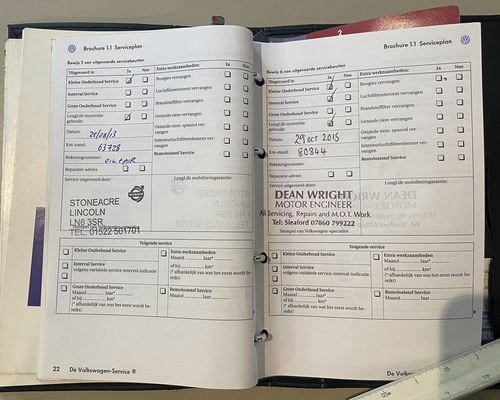 Brochure 1.1 Serviceplan
Bewijs 5 van uitgevoerde servicebeurten
Uitgevoerd is: Ja Nee
Kleine Onderhoud Service
Interval Service
Grote Onderhoud Service
LongLife motorolie gebruikt
Datum:
Km-stand: 63728
Rekeningnummer:
Reparatie advies
Service uitgevoerd door:
Extra werkzaamheden: Ja Nee
Bougies vervangen
Luchtfilterelement vervangen
Brandstoffilter vervangen
Getande riem vervangen
Getande riem: spanrol vervangen
Interieurfilterelement vervangen
Remvloeistof Service
LongLife mobiliteitsgarantie:
STONEACRE
LINCOLN
LN6 3SR
TEL: 01522 501701
Volgende service
Kleine Onderhoud Service
Interval Service
volgens variabele service-interval-indicatie
Grote Onderhoud Service
Maand ........ jaar ........
of bij ........ km*
(* afhankelijk van wat het eerst wordt bereikt)
Extra werkzaamheden:
Maand ........ jaar*
of bij ........ km*
(* afhankelijk van wat het eerst wordt bereikt)
Remvloeistof Service
Maand ........ jaar ........
22 De Volkswagen-Service ®
2
Brochure 1.1 Serviceplan
Bewijs 6 van uitgevoerde servicebeurten
Uitgevoerd is: Ja Nee
Kleine Onderhoud Service
Interval Service
Grote Onderhoud Service
LongLife motorolie gebruikt
Datum: 29 OCT 2015
Km-stand: 80844
Rekeningnummer:
Reparatie advies
Service uitgevoerd door:
Extra werkzaamheden: Ja Nee
Bougies vervangen
Luchtfilterelement vervangen
Brandstoffilter vervangen
Getande riem vervangen
Getande riem: spanrol vervangen
Interieurfilterelement vervangen
Remvloeistof Service
LongLife mobiliteitsgarantie:
DEAN WRIGHT
MOTOR ENGINEER
All Servicing, Repairs and M.O.T. Work
Tel: Sleaford 07860 799222
Stempel van Volkswagen-specialist
Volgende service
Kleine Onderhoud Service
Interval Service
volgens variabele service-interval-indicatie
Grote Onderhoud Service
Maand ........ jaar ........
of bij ........ km*
(* afhankelijk van wat het eerst wordt bereikt)
Extra werkzaamheden:
Maand ........ jaar*
of bij ........ km*
(* afhankelijk van wat het eerst wordt bereikt)
Remvloeistof Service
Maand ........ jaar ........
De Volksw